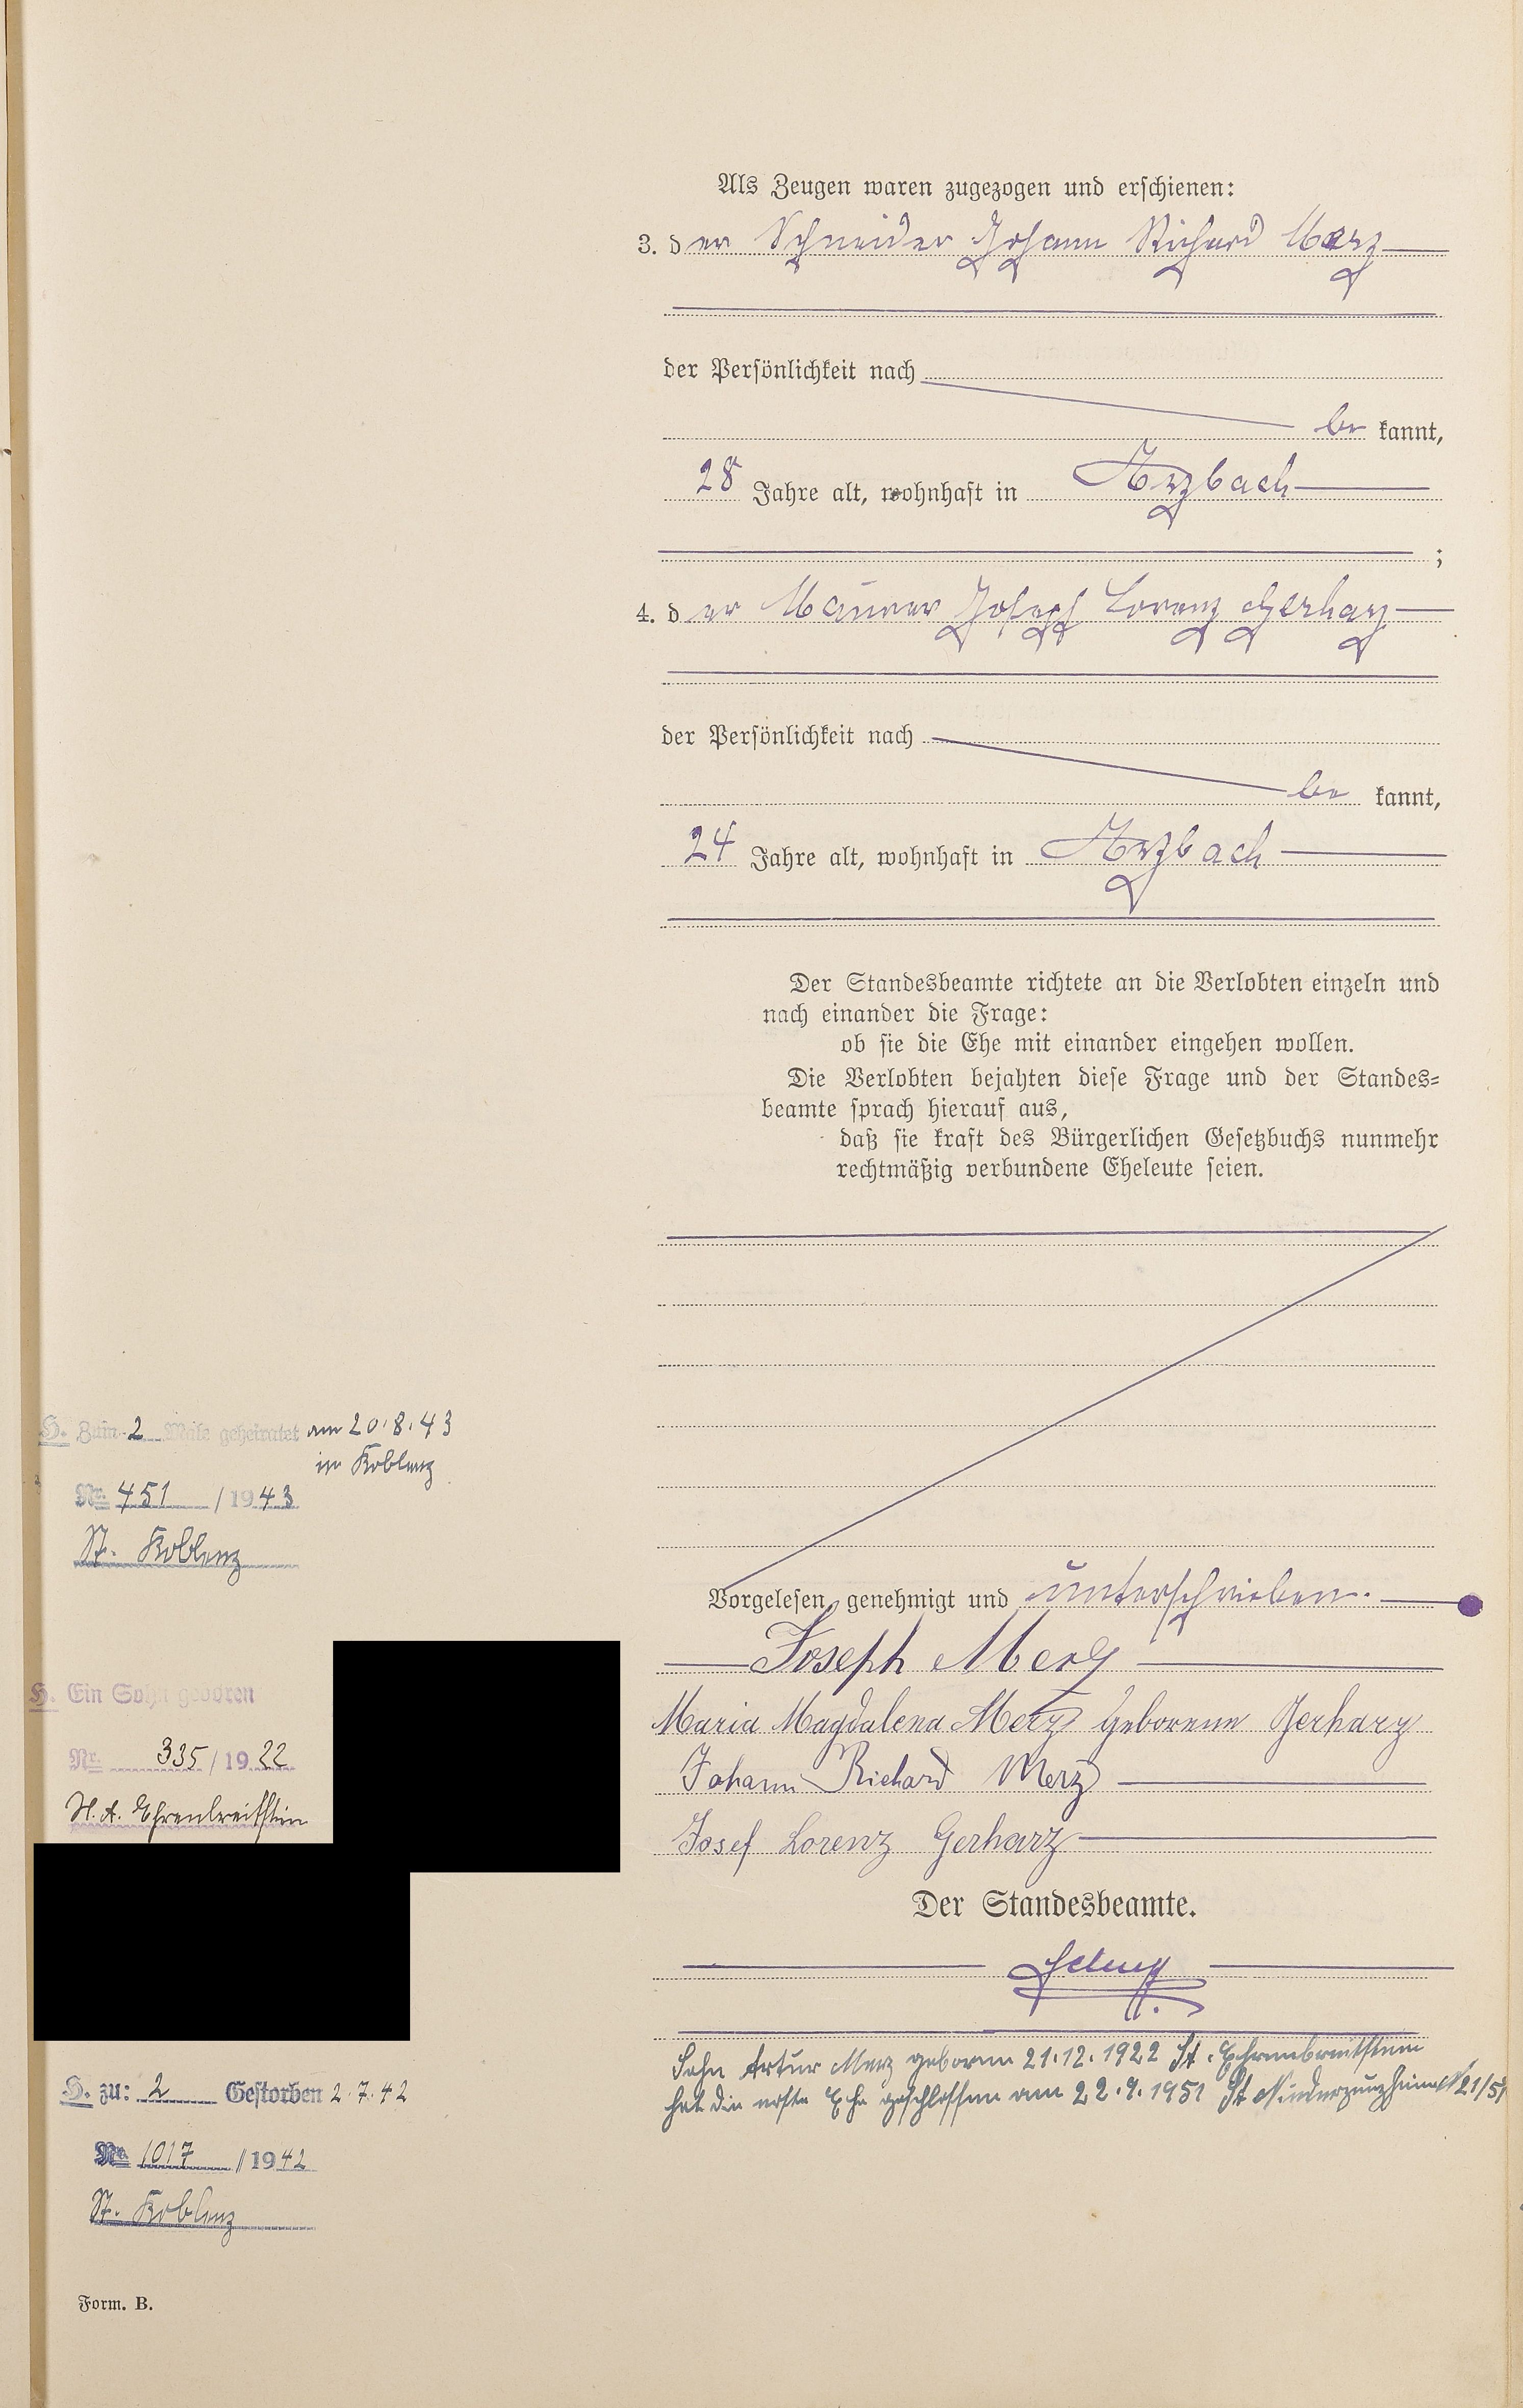 Als Zeugen waren zugezogen und erschienen:
3. der Schneider Johann Richard Merz
der Persönlichkeit nach
be kannt,
28 Jahre alt, wohnhaft in Arzbach
;
4. der Maurer Joseph Lorenz Gerharz
der Persönlichkeit nach
be kannt,
24 Jahre alt, wohnhaft in Arzbach
Der Standesbeamte richtete an die Verlobten einzeln und
nach einander die Frage:
ob sie die Ehe mit einander eingehen wollen.
Die Verlobten bejahten diese Frage und der Standes-
beamte sprach hierauf aus,
daß sie kraft des Bürgerlichen Gesetzbuchs nunmehr
rechtmäßig verbundene Eheleute seien.
Vorgelesen, genehmigt und unterschrieben.
Joseph Merz
Maria Magdalena Merz geborene Gerharz
Johann Richard Merz
Josef Lorenz Gerharz
Der Standesbeamte.
Sohn Artur Merz geboren 21.12.1922 St. Ehrenbreitstein
hat die erste Ehe geschlossen am 22.9.1951 St Niederzeuzheim N 21/51
H. Zum 2 Male geheiratet am 20.8.43
in Koblenz
Nr. 451 / 1943
St. Koblenz
H. Ein Sohn geboren
Nr. 335 / 1922
St. A. Ehrenbreitstein
H. zu: 2 Gestorben 2.7.42
Nr. 1017 / 1942
St. Koblenz
Form. B.